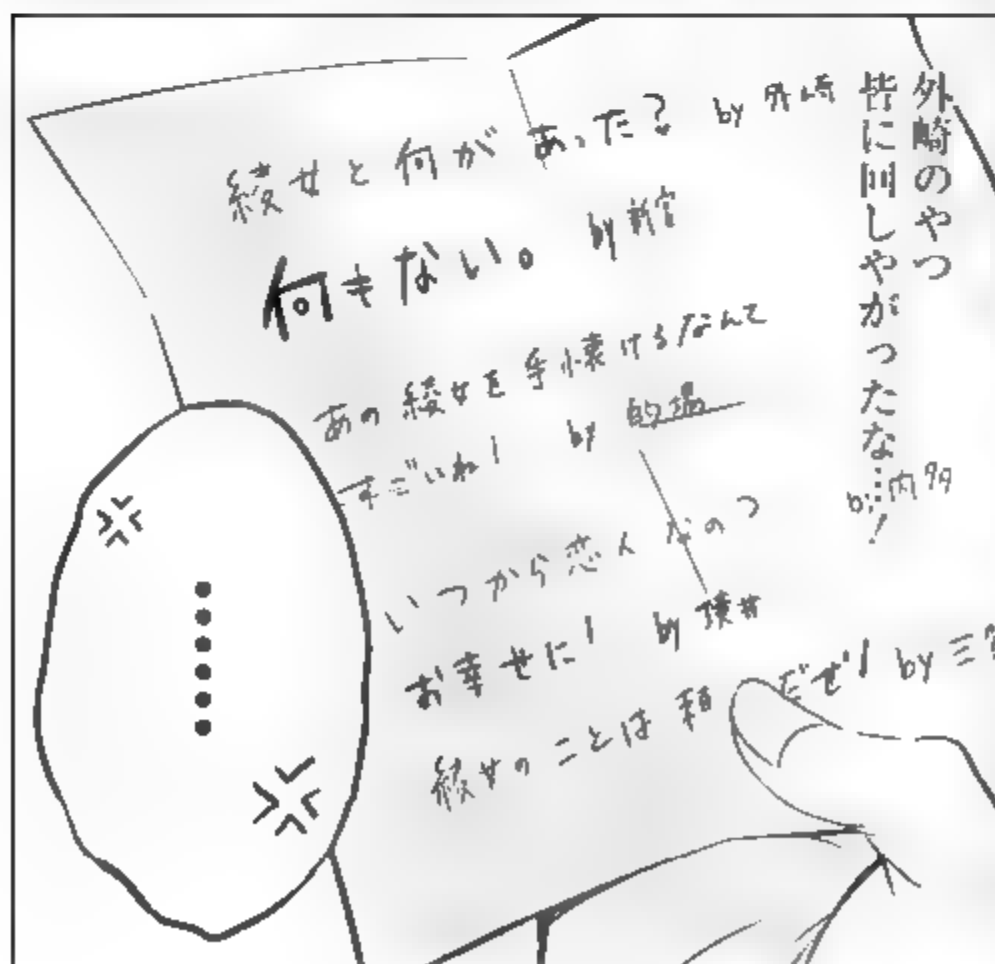 外崎のやつ
皆に回しやがったな…!
綾女と何があった? by 外崎
何もない。 by 新宮
あの綾女を手懐けるなんて
すごいね! by 的場
いつから恋人なの?
by 内多
お幸せに! by 横井
綾女のことは頼 だぜ! by 三